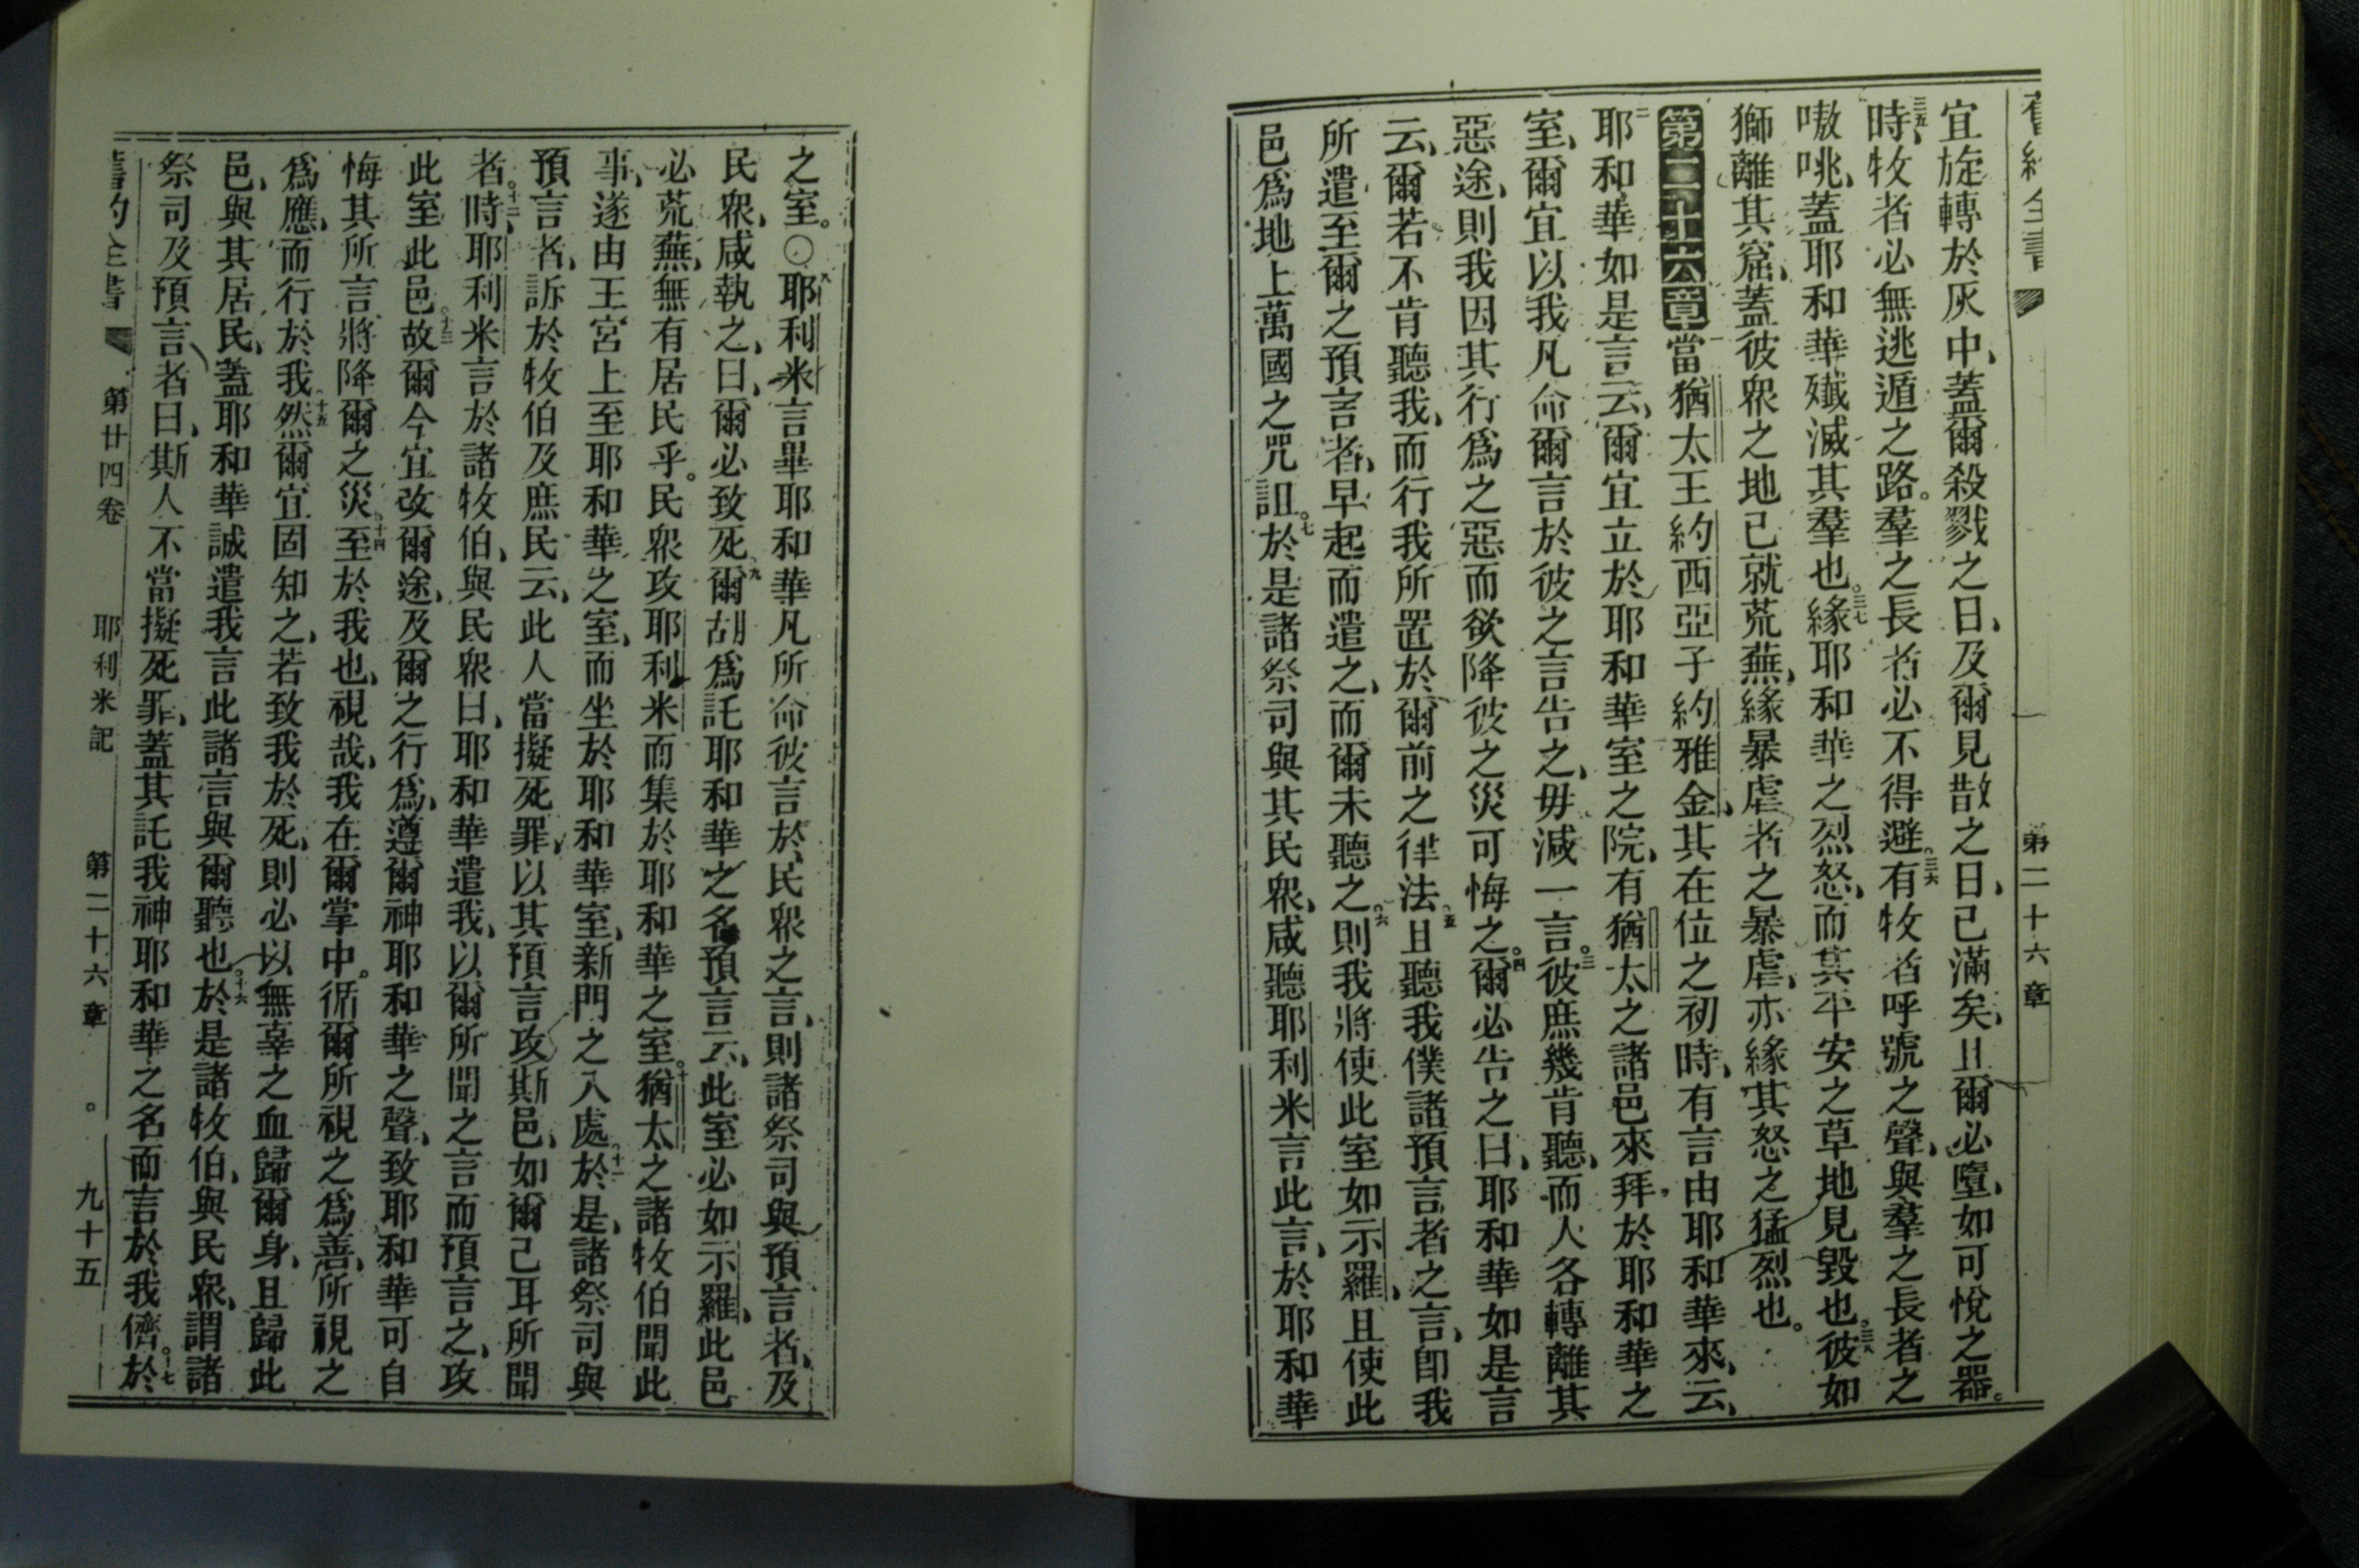 宜旋轉於灰中、蓋爾殺戮之日、及爾見散之日、已滿矣、且爾必墮、如可悅之器。
三五時、牧者必無逃遁之路。羣之長者必不得避。三六有牧者呼號之聲、與羣之長者之
嗷咷、蓋耶和華殲滅其羣也。三七緣耶和華之烈怒、而其平安之草地見毀也。三八彼如
獅離其窟、蓋彼眾之地已就荒蕪、緣暴虐者之暴虐、亦緣其怒之猛烈也。
第二十六章 當猶太王約西亞子約雅金、其在位之初時、有言由耶和華來、云、
二耶和華如是言云、爾宜立於耶和華室之院、有猶太之諸邑來拜於耶和華之
室、爾宜以我凡命爾言於彼之言告之、毋減一言。三彼庶幾肯聽、而人各轉離其
惡途、則我因其行爲之惡而欲降彼之災可悔之。四爾必告之曰、耶和華如是言
云、爾若不肯聽我、而行我所置於爾前之律法。五且聽我僕諸預言者之言、卽我
所遣至爾之預言者、早起而遣之、而爾未聽之。六則我將使此室如示羅、且使此
邑爲地上萬國之咒詛。七於是諸祭司與其民眾、咸聽耶利米言此言、於耶和華
第二十六章
之室。〇八耶利米言畢耶和華凡所命彼言於民眾之言、則諸祭司與預言者、及
民眾、咸執之、曰、爾必致死。九爾胡爲託耶和華之名預言云、此室必如示羅、此邑
必荒蕪、無有居民乎。民眾攻耶利米而集於耶和華之室。十猶太之諸牧伯聞此
事、遂由王宮上至耶和華之室、而坐於耶和華室、新門之入處。十一於是、諸祭司與
預言者、訴於牧伯及庶民云、此人當擬死罪、以其預言攻斯邑、如爾己耳所聞
者。十二時、耶利米言於諸牧伯、與民眾曰、耶和華遣我、以爾所聞之言而預言之、攻
此室此邑。十三故爾今宜改爾途、及爾之行爲、遵爾神耶和華之聲、致耶和華可自
悔其所言將降爾之災。十四至於我也、視哉、我在爾掌中。循爾所視之爲善、所視之
爲應、而行於我。十五然爾宜固知之、若致我於死、則必以無辜之血歸爾身、且歸此
邑、與其居民、蓋耶和華誠遣我言此諸言與爾聽也。十六於是諸牧伯、與民眾、謂諸
祭司及預言者曰、斯人不當擬死罪、蓋其託我神耶和華之名而言於我儕。十七於
舊約全書 第廿四卷 耶利米記 第二十六章 九十五